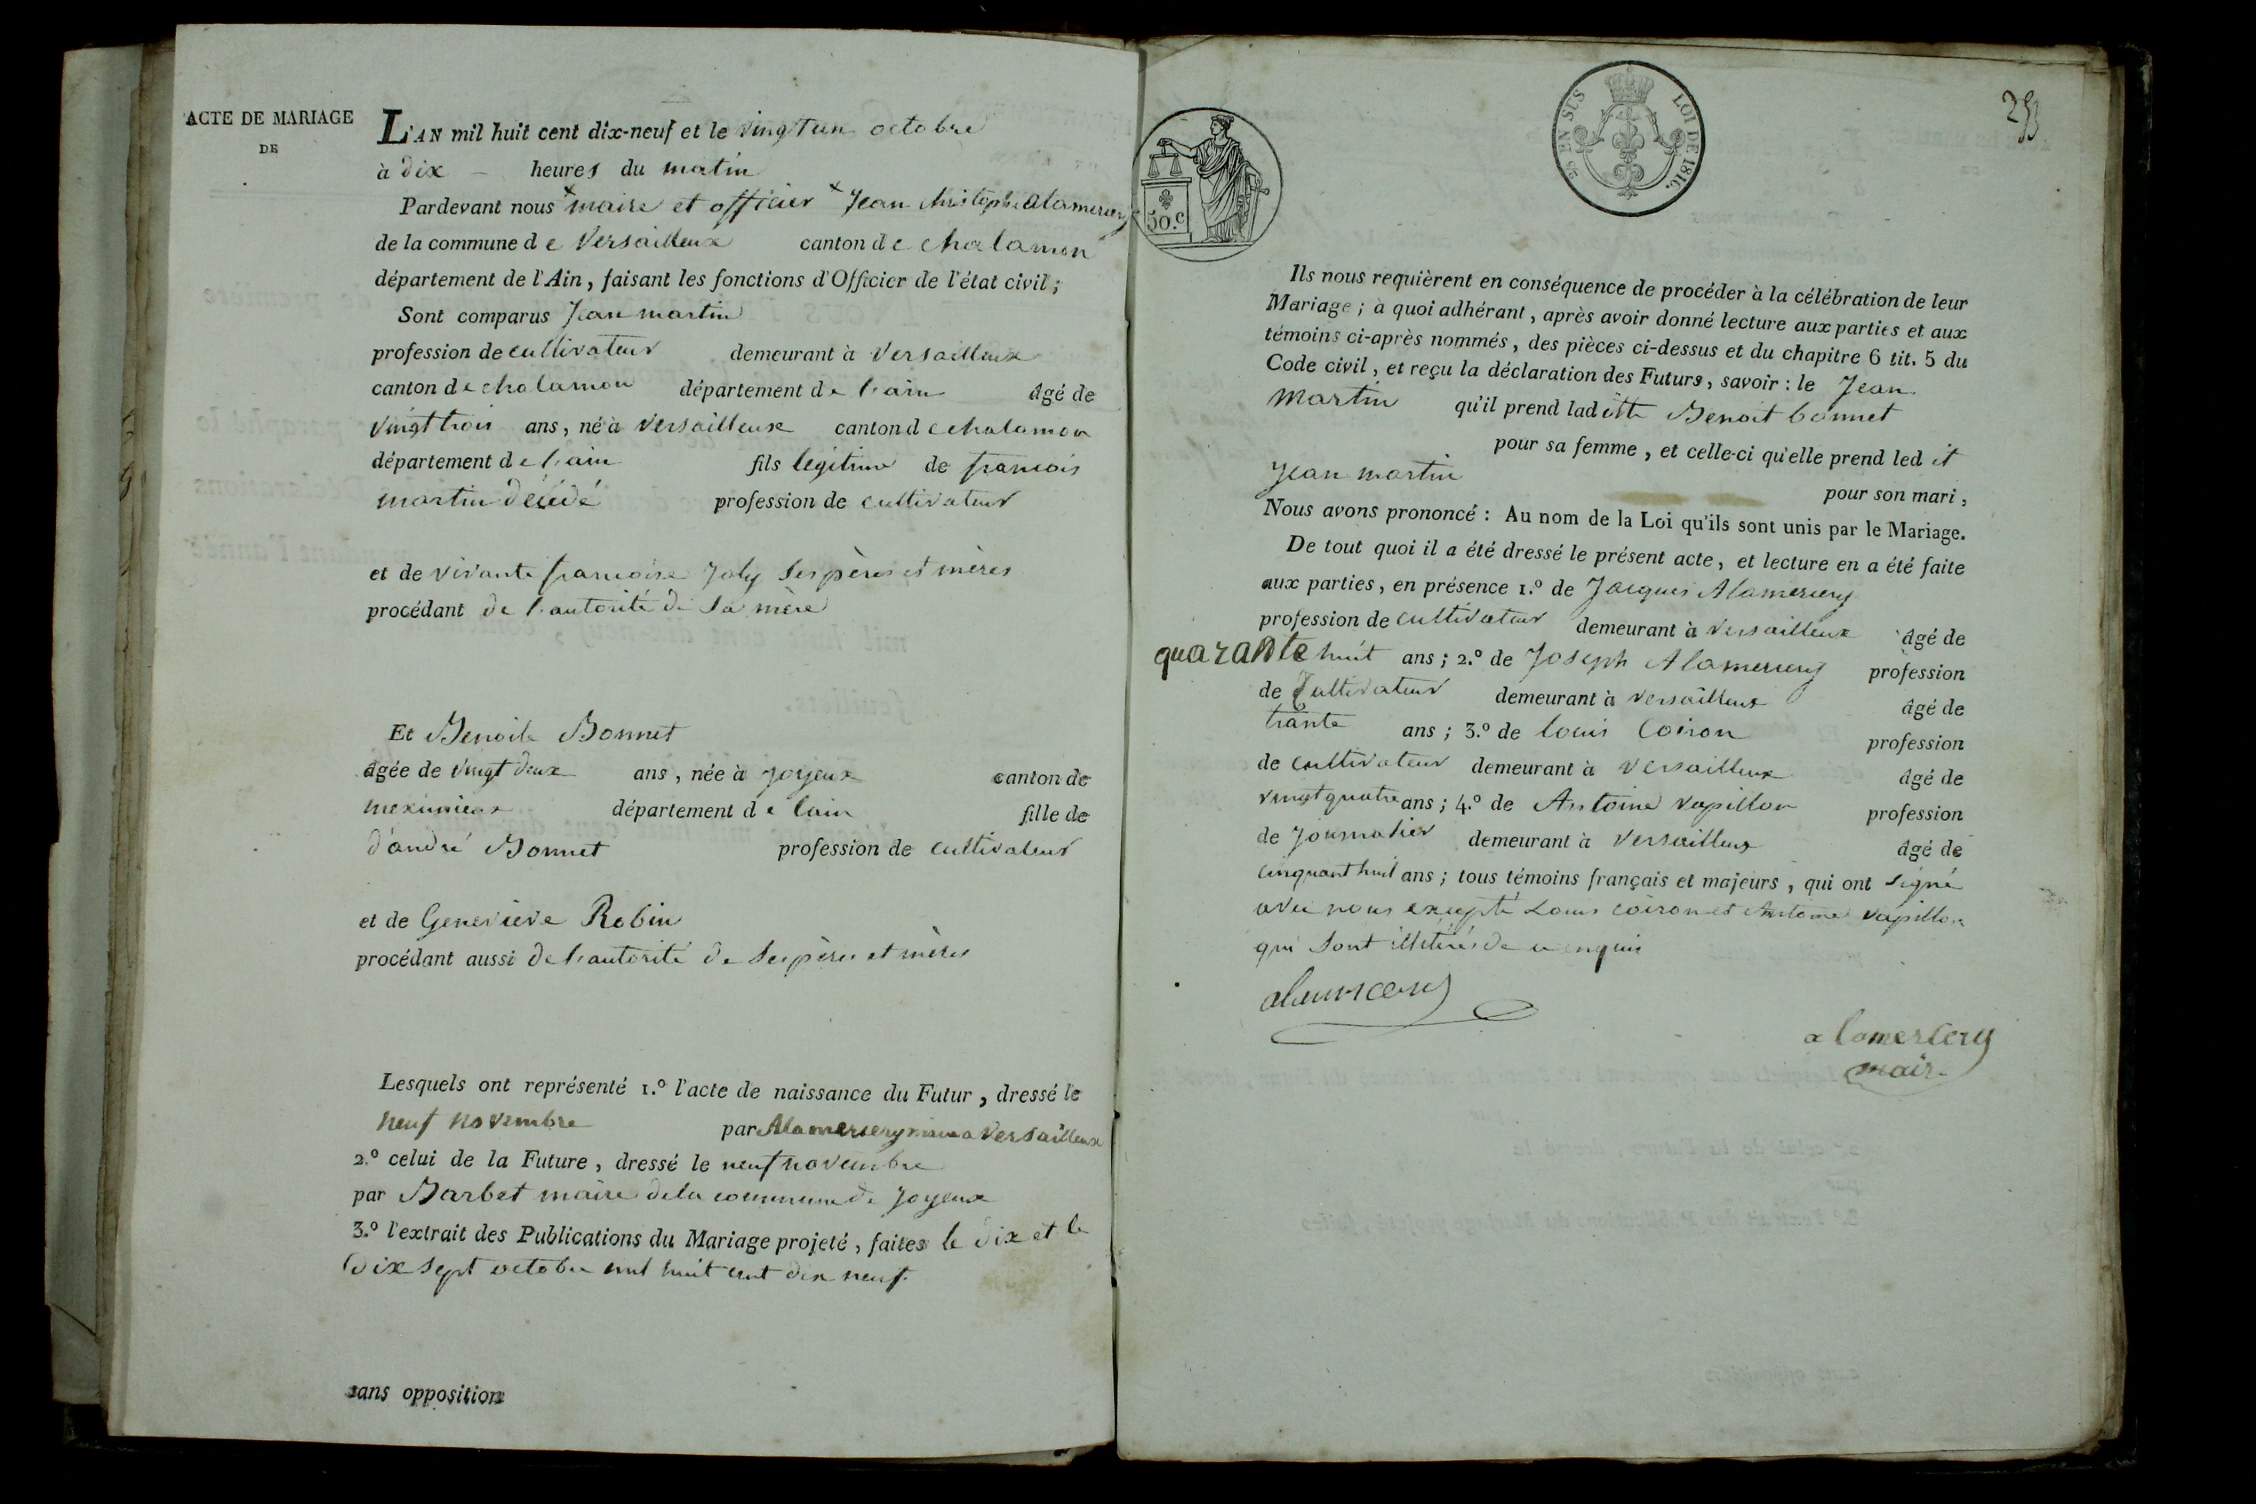 ACTE DE MARIAGE
DE
L'AN mil huit cent dix-neuf et le vingt un octobre
à dix heures du matin
Pardevant nous maire et officier Jean christophe alamercery
de la commune de Versailleux canton de chalamon
département de l'Ain, faisant les fonctions d'Officier de l'état civil;
Sont comparus Jean martin
profession de cultivateur demeurant à Versailleux
canton de chalamon département de l'ain âgé de
vingt trois ans, né à Versailleux canton de chalamon
département de l'ain fils legitime de francois
martin décédé profession de cultivateur
et de vivante francoise Joly ses pères et mères
procédant de l'autorité de Sa mère
Et Benoite Bonnet
âgée de vingt deux ans, née à Joyeux canton de
meximieux département de lain fille de
d'andré Bonnet profession de cultivateur
et de Geneviève Robin
procédant aussi de l'autorité de Ses pères et mères
Lesquels ont représenté 1.º l'acte de naissance du Futur, dressé le
neuf novembre par Alamercery maire a Versailleux
2.º celui de la Future, dressé le neuf novembre
par Barbet maire de la commune de Joyeux
3.º l'extrait des Publications du Mariage projeté, faites le dix et le
Dix Sept octobre mil huit cent dix neuf
sans opposition
50.c
25 EN SUS LOI DE 1816.
Ils nous requièrent en conséquence de procéder à la célébration de leur
Mariage; à quoi adhérant, après avoir donné lecture aux parties et aux
témoins ci-après nommés, des pièces ci-dessus et du chapitre 6 tit. 5 du
Code civil, et reçu la déclaration des Futurs, savoir: le Jean
Martin qu'il prend laditte Benoit bonnet
pour sa femme, et celle-ci qu'elle prend ledit
Jean martin pour son mari,
Nous avons prononcé: Au nom de la Loi qu'ils sont unis par le Mariage.
De tout quoi il a été dressé le présent acte, et lecture en a été faite
aux parties, en présence 1.º de Jacques Alamercery
profession de cultivateur demeurant à Versailleux âgé de
quarante huit ans; 2.º de Joseph Alamercery profession
de Cultivateur demeurant à Versailleux âgé de
trante ans; 3.º de louis Coiron profession
de cultivateur demeurant à Versailleux âgé de
vingt quatre ans; 4.º de Antoine vapillon profession
de Journalier demeurant à Versailleux âgé de
cinquant huit ans; tous témoins français et majeurs, qui ont signé
avec nous excepté Louis coiron et Antoine vapillon
qui Sont illiterés de ce enquis
alamercery
alamercery
maire